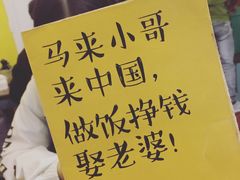 马来小哥
来中国，
做饭挣钱
娶老婆！